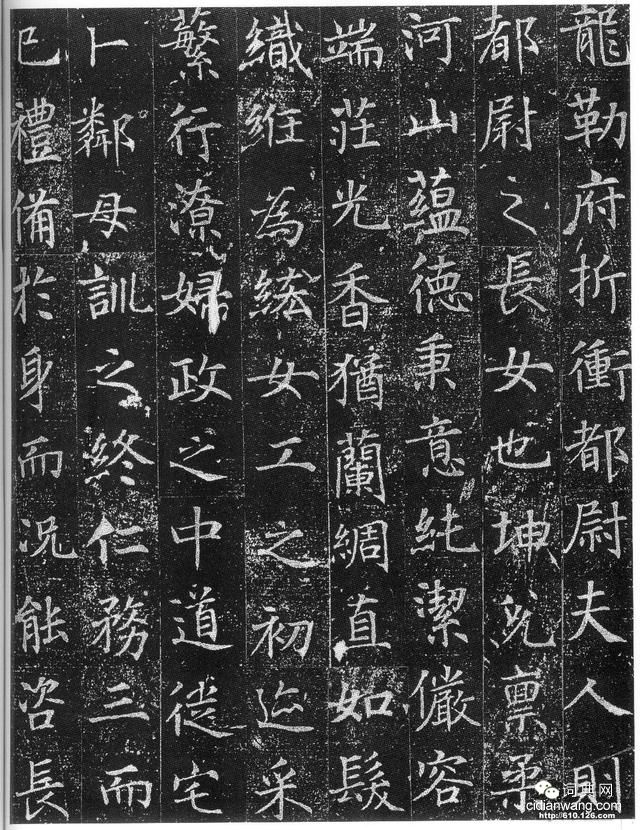 龍勒府折衝都尉夫人則
都尉之長女也坤皃禀柔
河山蘊德秉意純潔儼容
端莊光香猶蘭綢直如髮
織絍為紘女工之初迩采
蘩行潦婦政之中道徙宅
卜鄰母訓之終仁務三而
已禮備於身而況能咨長
词典网
cidianwang.com
http://610.126.com